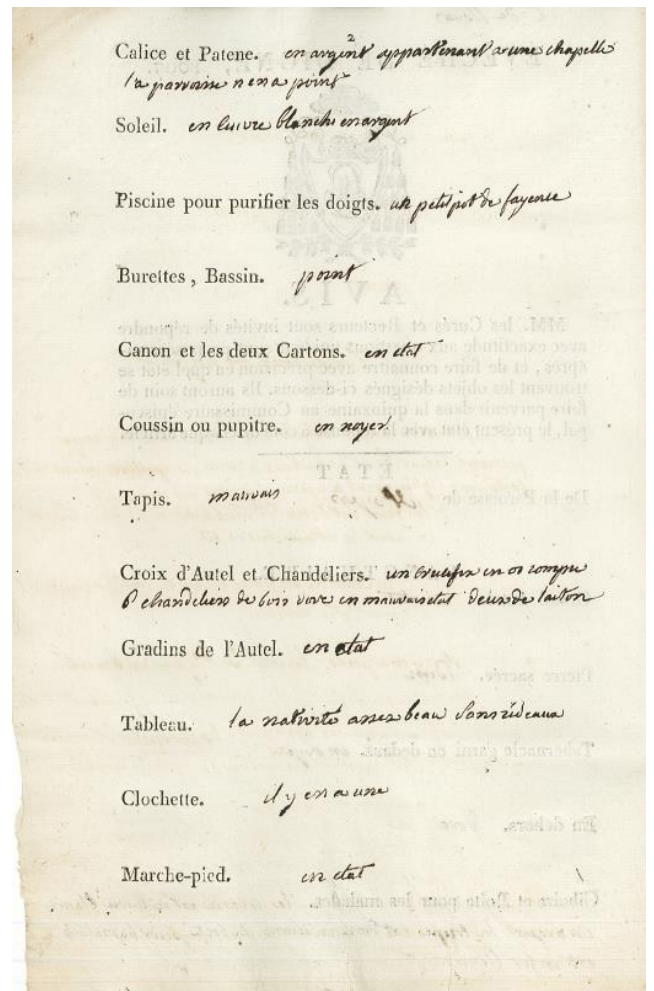 Calice et Patene. en argent appartenant a une chapelle
2
la parroisse n en a point
Soleil. en cuivre blanchi en argent
Piscine pour purifier les doigts. un petit pot de fayence
Burettes, Bassin. point
Canon et les deux Cartons. en etat
Coussin ou pupitre. en noyer
Tapis. mauvais
Croix d'Autel et Chandéliers. un crucifix en os rompu
6 chandeliers de bois doré en mauvais etat deux de laiton
Gradins de l'Autel. en etat
Tableau. la nativité assez beau sans rideaux
Clochette. il y en a une
Marche-pied. en etat